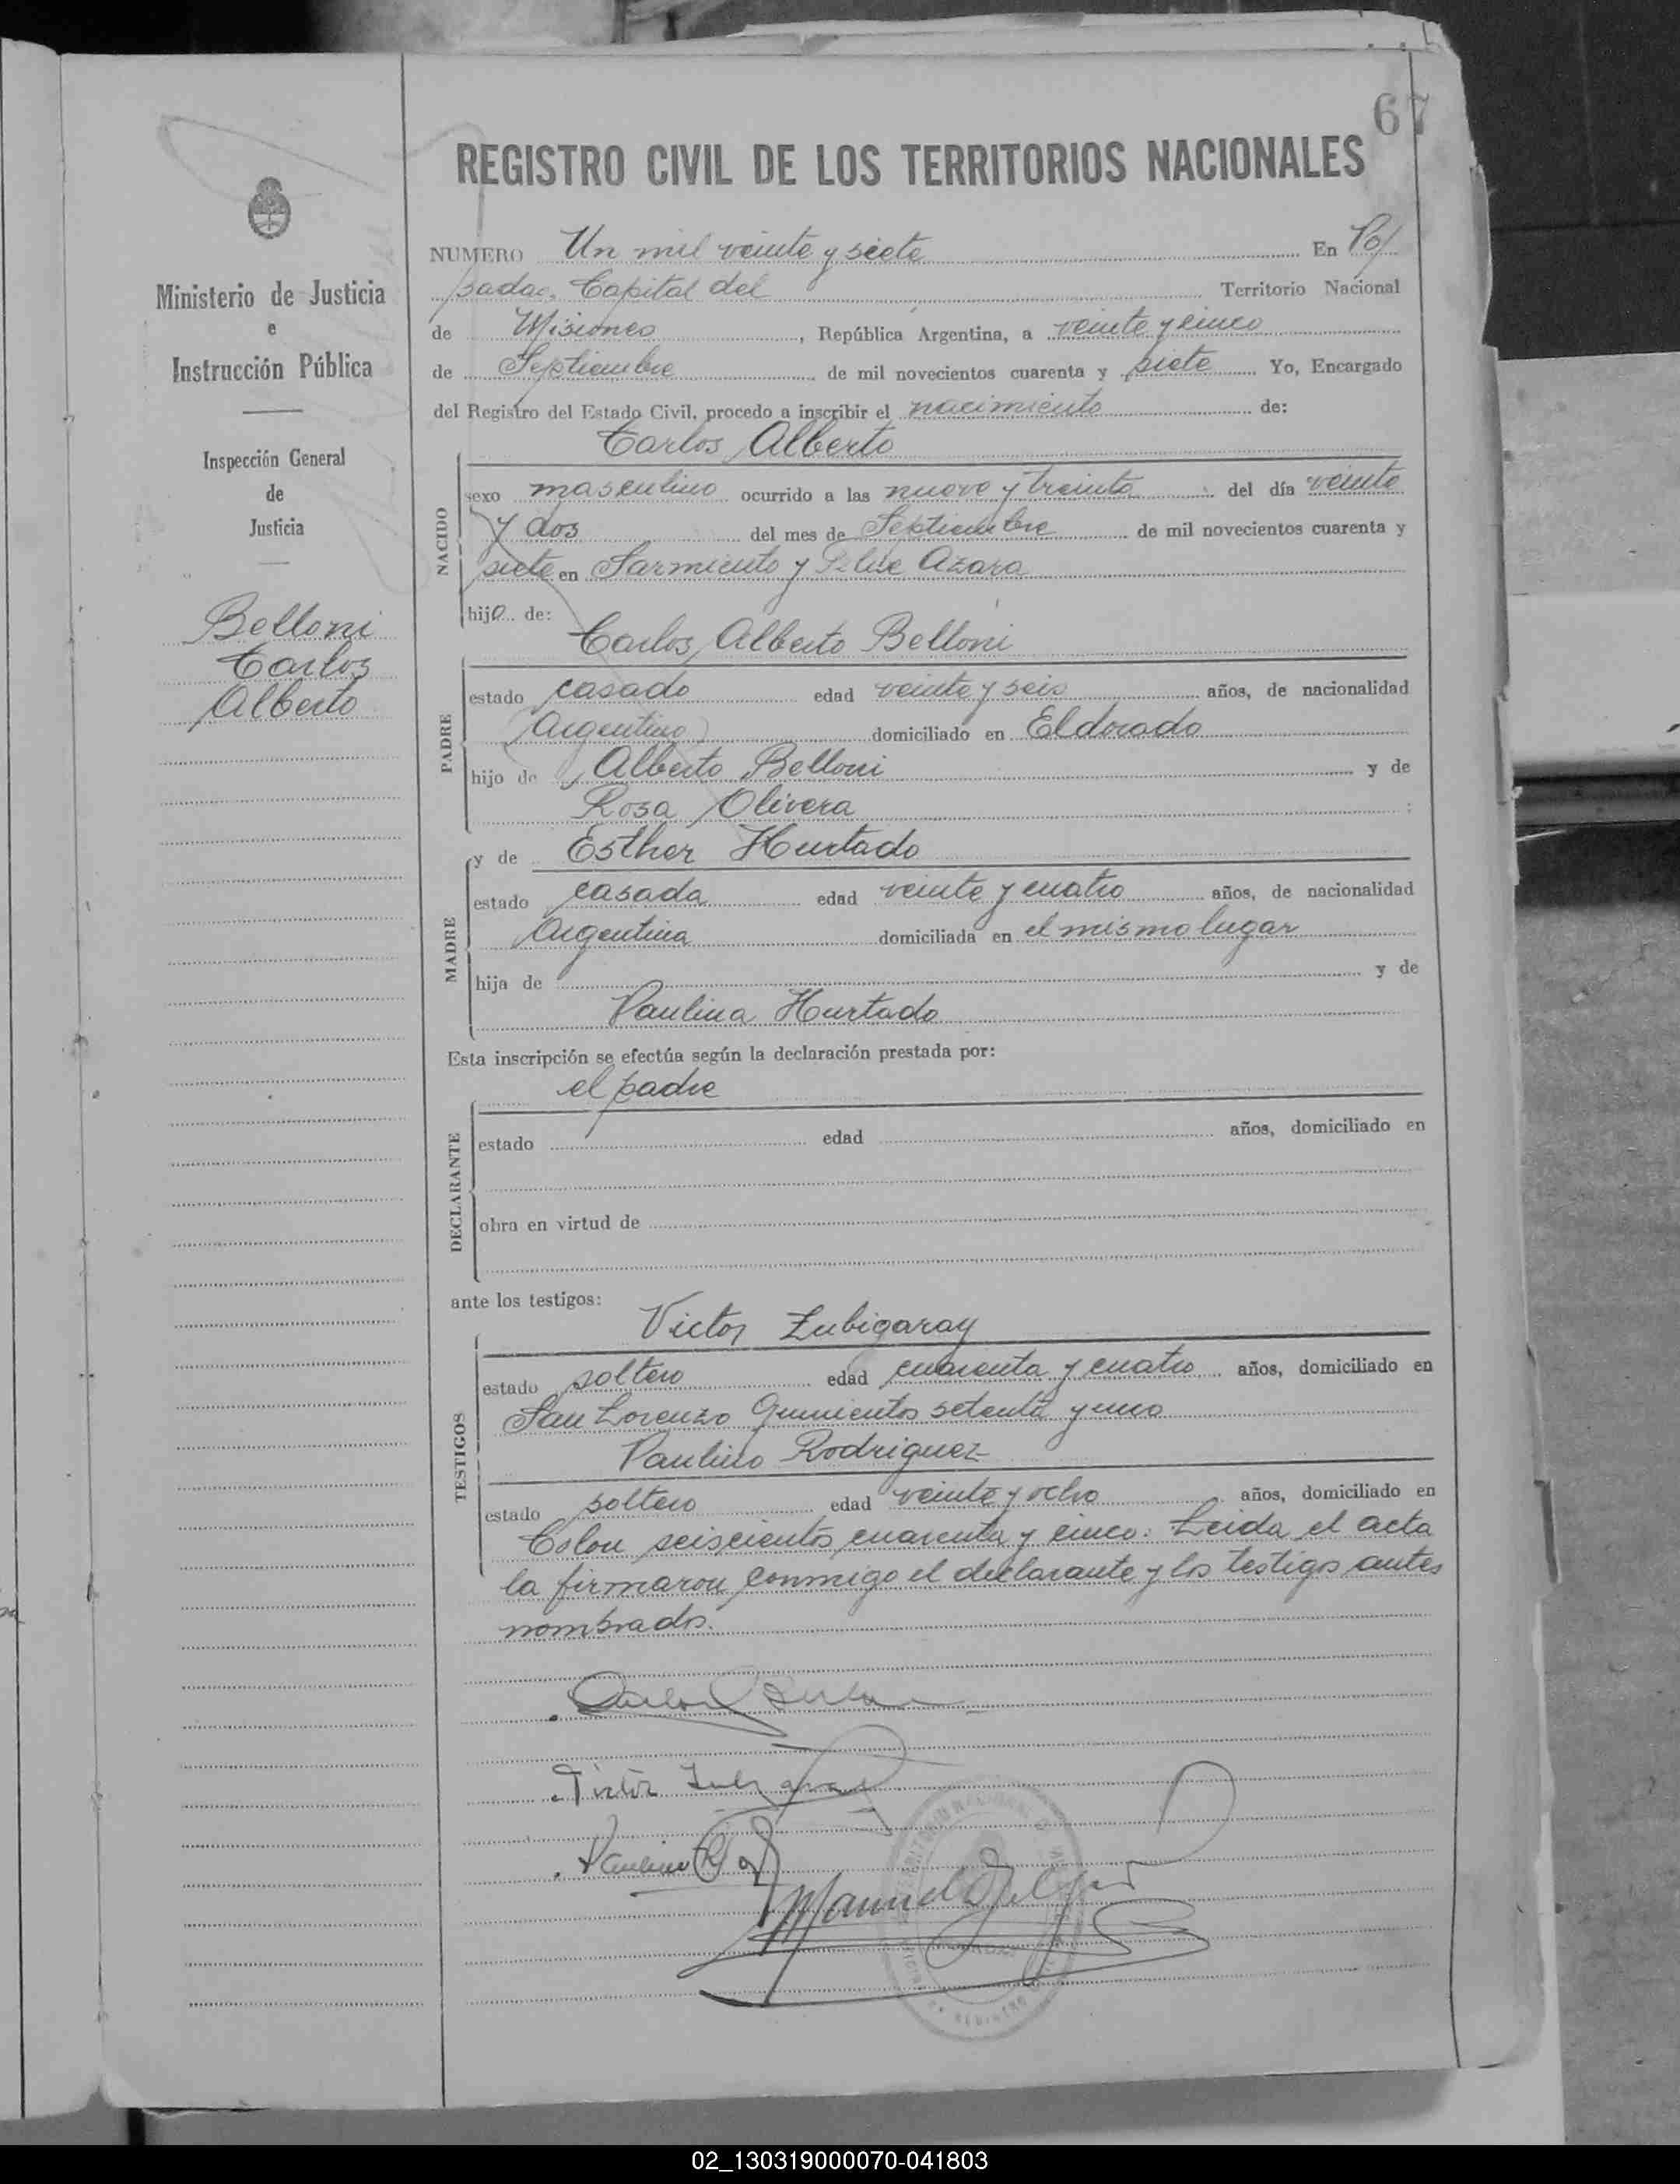 67
REGISTRO CIVIL DE LOS TERRITORIOS NACIONALES
Ministerio de Justicia
e
Instrucción Pública
Inspección General
de
Justicia
Belloni
Carlos
Alberto
NUMERO Un mil veinte y siete En Po/
sadas, Capital del Territorio Nacional
de Misiones, República Argentina, a veinte y cinco
de Septiembre de mil novecientos cuarenta y siete Yo, Encargado
del Registro del Estado Civil, procedo a inscribir el nacimiento de:
Carlos Alberto
NACIDO
sexo masculino ocurrido a las nueve y treinta del día veinte
y dos del mes de Septiembre de mil novecientos cuarenta y
siete en Sarmiento y Azara
hijo de:
Carlos Alberto Belloni
PADRE
estado casado edad veinte y seis años, de nacionalidad
Argentino domiciliado en Eldorado
hijo de Alberto Belloni y de
Rosa Olivera
y de Esther Hurtado
MADRE
estado casada edad veinte y cuatro años, de nacionalidad
Argentina domiciliada en el mismo lugar
hija de y de
Paulina Hurtado
Esta inscripción se efectúa según la declaración prestada por:
el padre
DECLARANTE
estado edad años, domiciliado en
obra en virtud de
ante los testigos:
Victor Zubigaray
TESTIGOS
estado soltero edad cuarenta y cuatro años, domiciliado en
San Lorenzo Quinientos setenta y uno
Paulino Rodriguez
estado soltero edad veinte y ocho años, domiciliado en
Colon seiscientos cuarenta y cinco. Leida el acta
la firmaron conmigo el declarante y los testigos antes
nombrados.
Victor Zubigaray
Paulino
Manuel
02_130319000070-041803